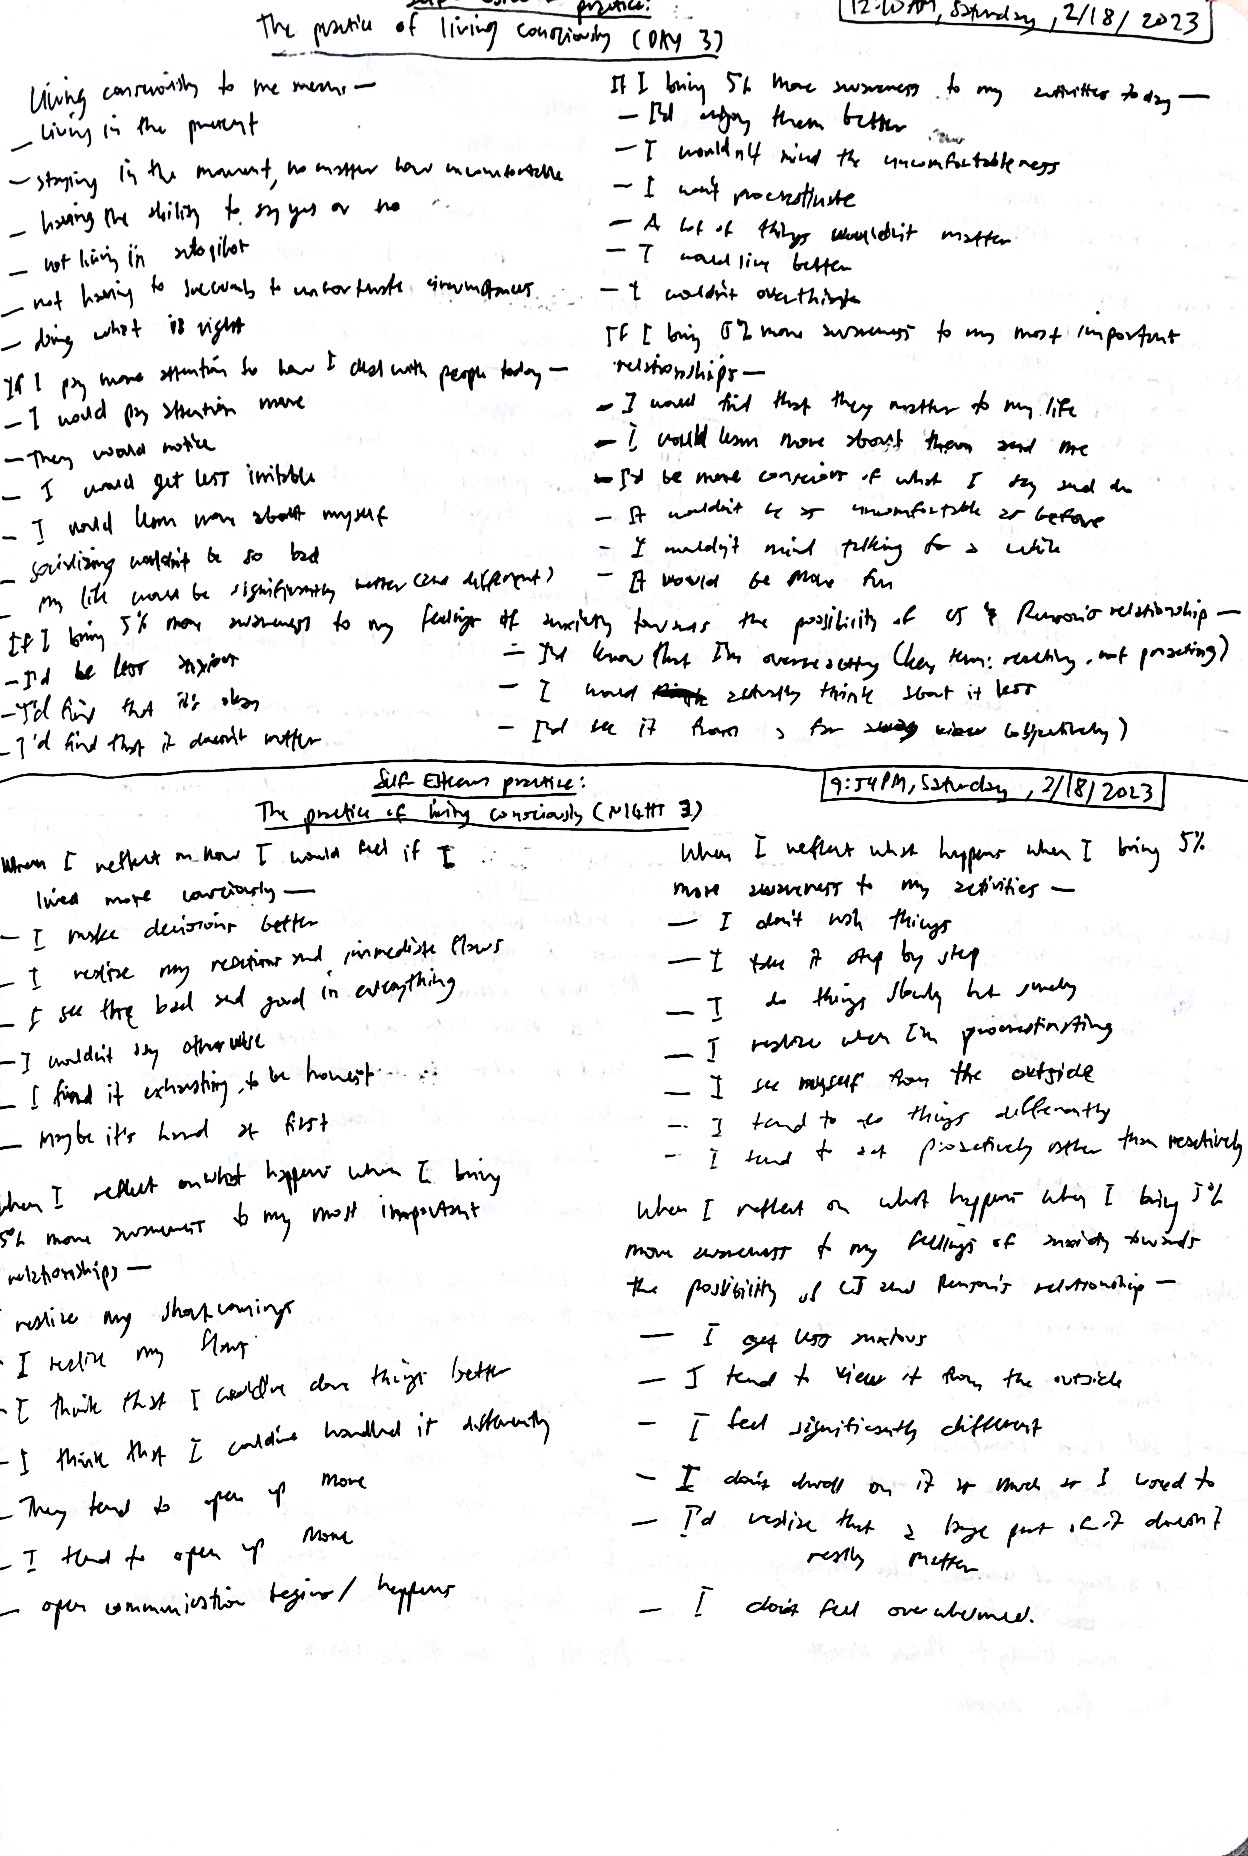 Self Esteem practice:
The practice of living consciously (DAY 3)
12:10 AM, Saturday, 2/18/2023
Living consciously to me means —
— living in the present
— staying in the moment, no matter how uncomfortable
— having the ability to say yes or no
— not living in autopilot
— not having to succumb to unfortunate circumstances
— doing what is right
If I pay more attention to how I deal with people today —
— I would pay attention more
— They would notice
— I would get less irritable
— I would learn more about myself
— socializing wouldn't be so bad
— my life would be significantly better (and different)
If I bring 5% more awareness to my activities today —
— I'd enjoy them better
— I wouldn't mind the uncomfortableness
— I won't procrastinate
— A lot of things wouldn't matter
— I would live better
— I wouldn't overthink
If I bring 5% more awareness to my most important
relationships —
— I would find that they matter to my life
— I would learn more about them and me
— I'd be more conscious of what I say and do
— It wouldn't be as uncomfortable as before
— I wouldn't mind talking for a while
— It would be more fun
If I bring 5% more awareness to my feelings of anxiety towards the possibility of CJ & relationship —
— I'd be less anxious
— I'd find that it's okay
— I'd find that it doesn't matter
— I'd know that I'm overreacting (key term: reacting, not proacting)
— I would actually think about it less
— I'd see it from a far view (objectively)
Self Esteem practice:
The practice of living consciously (NIGHT 3)
9:54 PM, Saturday, 2/18/2023
When I reflect on how I would feel if I
lived more consciously —
— I make decisions better
— I realize my reactions and immediate flaws
— I see the bad and good in everything
— I wouldn't say otherwise
— I find it exhausting to be honest
— Maybe it's hard at first
When I reflect on what happens when I bring
5% more awareness to my most important
relationships —
I realize my shortcomings
- I realize my flaws
- I think that I could've done things better
- I think that I could've handled it differently
— They tend to open up more
— I tend to open up more
— open communication begins / happens
When I reflect what happens when I bring 5%
more awareness to my activities —
— I don't rush things
— I take it step by step
— I do things slowly but surely
— I realize when I'm procrastinating
— I see myself from the outside
— I tend to do things differently
— I tend to act proactively rather than reactively
When I reflect on what happens when I bring 5%
more awareness to my feelings of anxiety towards
the possibility of CJ and relationship —
— I get less anxious
— I tend to view it from the outside
— I feel significantly different
— I don't dwell on it as much as I used to
— I'd realize that a large part of it doesn't
really matter
— I don't feel overwhelmed.